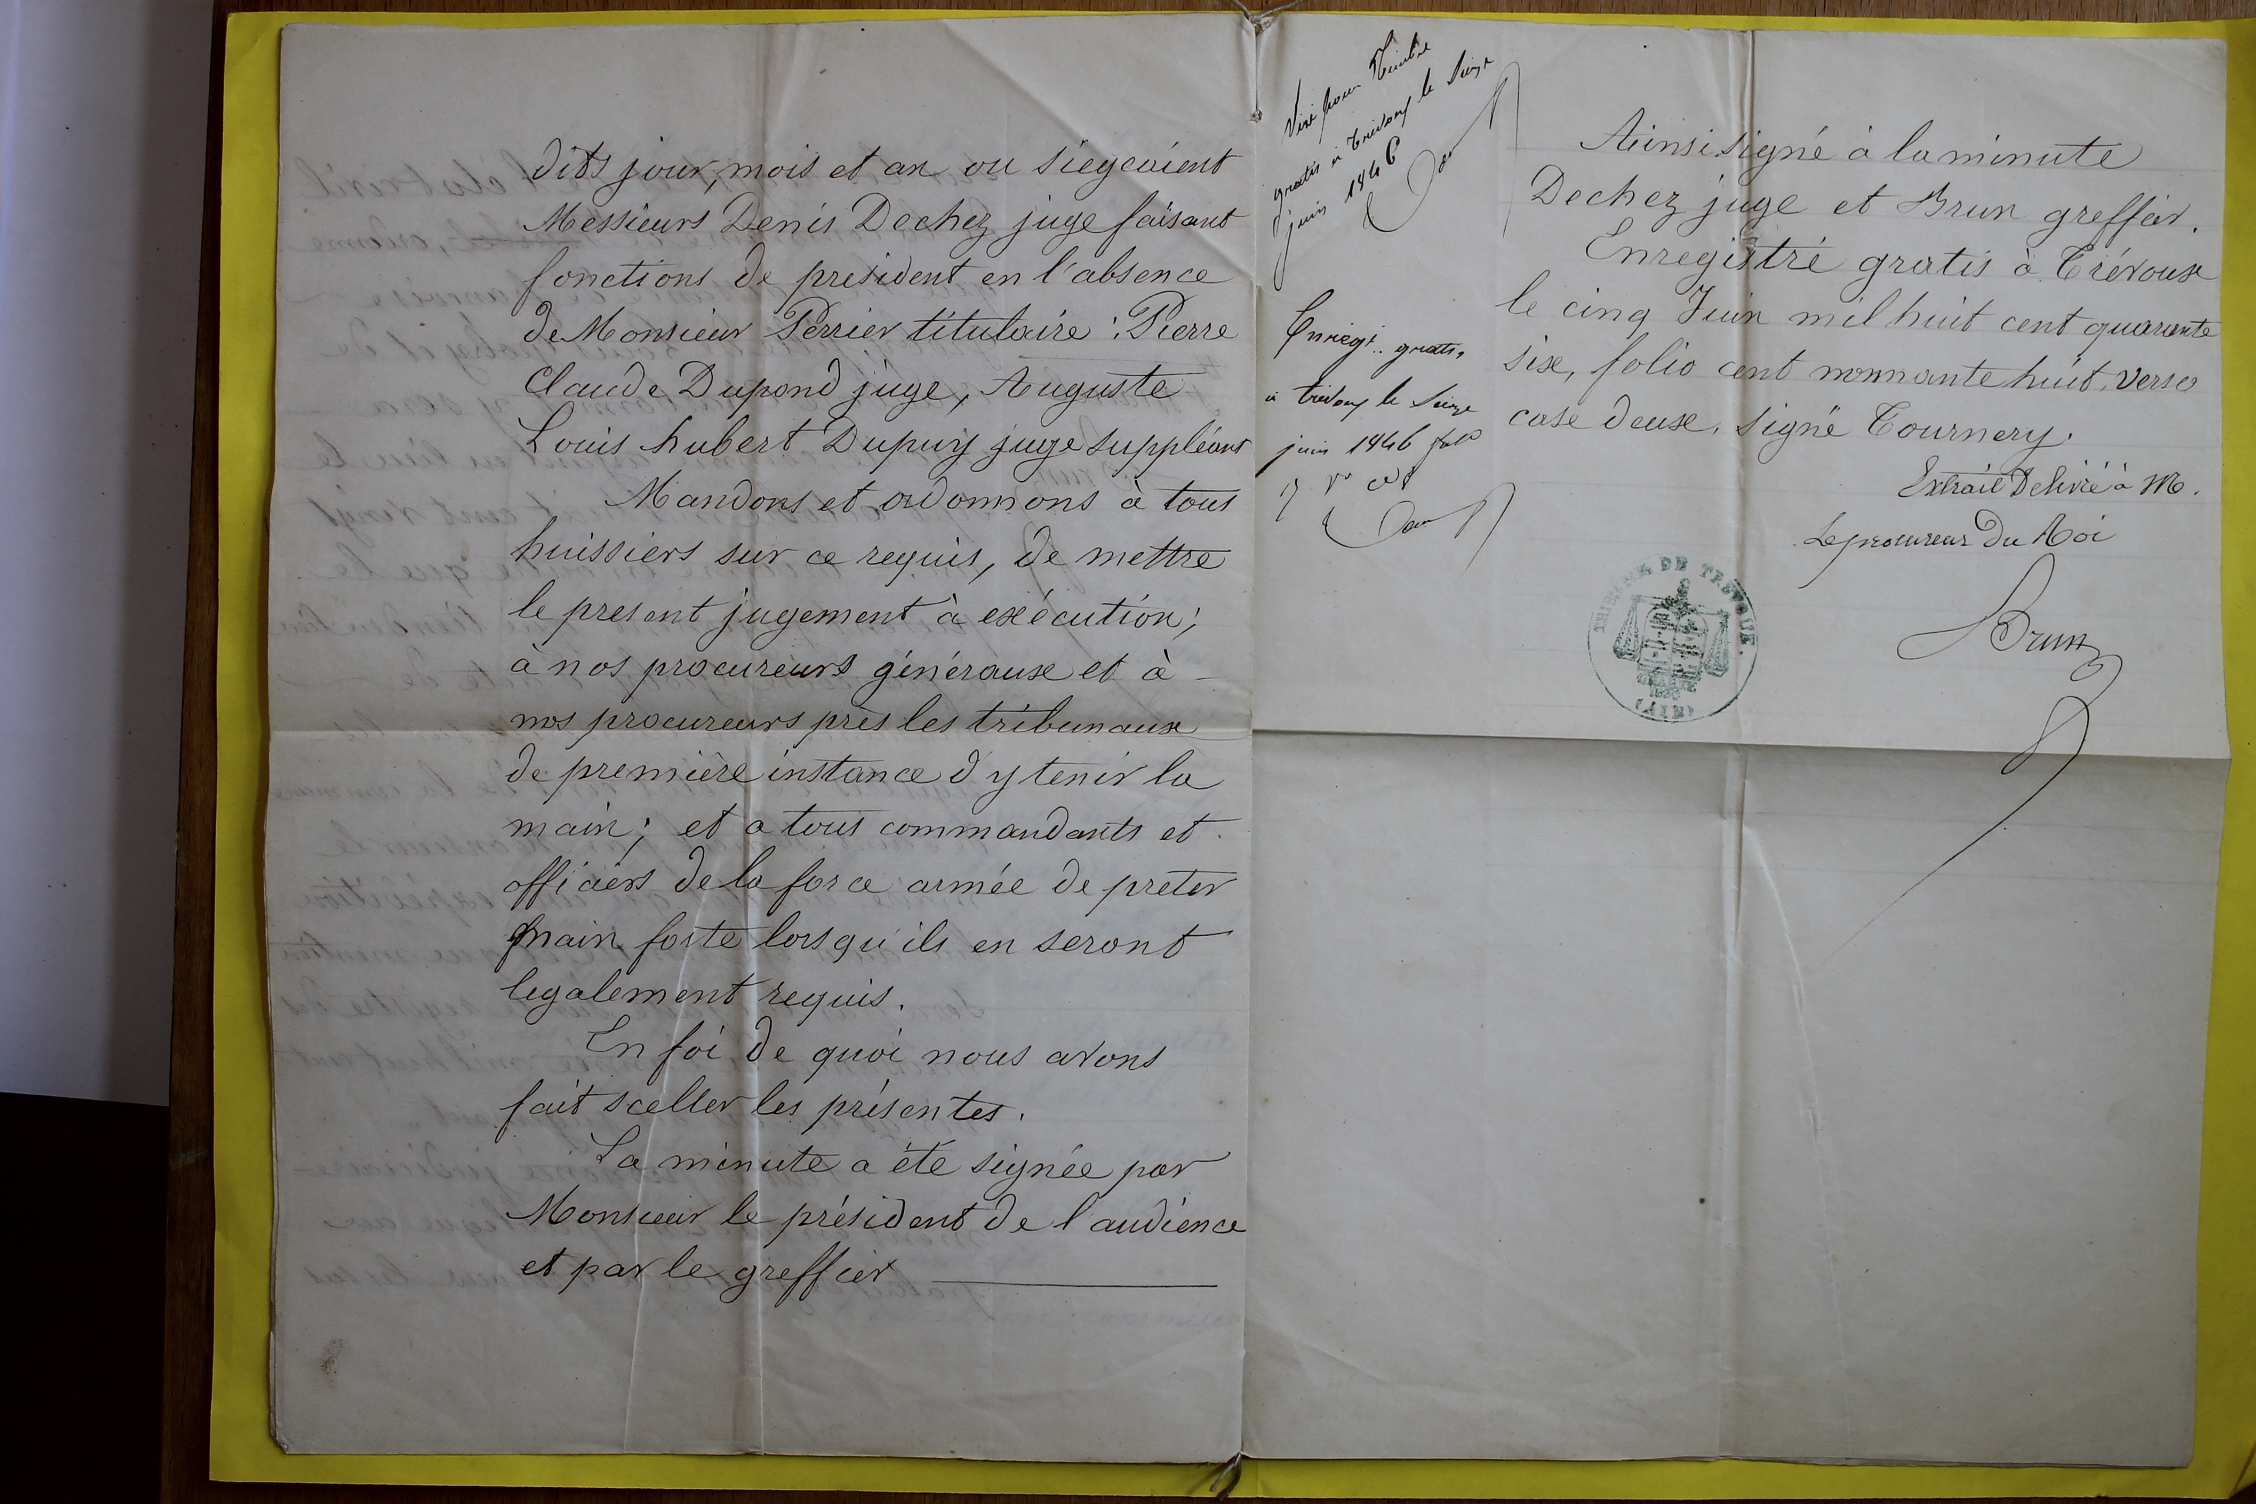 dits jour, mois et an ou siégeaient
Messieurs Denis Dechez juge faisant
fonctions de president en l'absence
de Monsieur Perrier titulaire : Pierre
Claude Dupond juge, Auguste
Louis hubert Dupuy juge suppléant
Mandons et ordonnons à tous
huissiers sur ce requis, de mettre
le present jugement à exécution;
à nos procureurs généraux et à
nos procureurs près les tribunaux
de première instance d'y tenir la
main; et a tous commandants et
officiers de la force armée de preter
main forte lorsqu'ils en seront
legalement requis.
En foi de quoi nous avons
fait sceller les présentes.
La minute a été signée par
Monsieur le président de l'audience
et par le greffier
Visé pour Timbre
gratis à Trévoux le Seize
juin 1846
Enregt. gratis
à Trévoux le Seize
juin 1846 fol°
Ainsi signé à la minute
Dechez juge et Brun greffier.
Enregistré gratis à Trévoux
le cinq Juin mil huit cent quarante
six, folio cent nonnante huit, verso
case deux. signé Tournery.
Extrait Délivré à M.
Le procureur du Roi
Brun
TRIBUNAL DE TRÉVOUX.
(AIN)